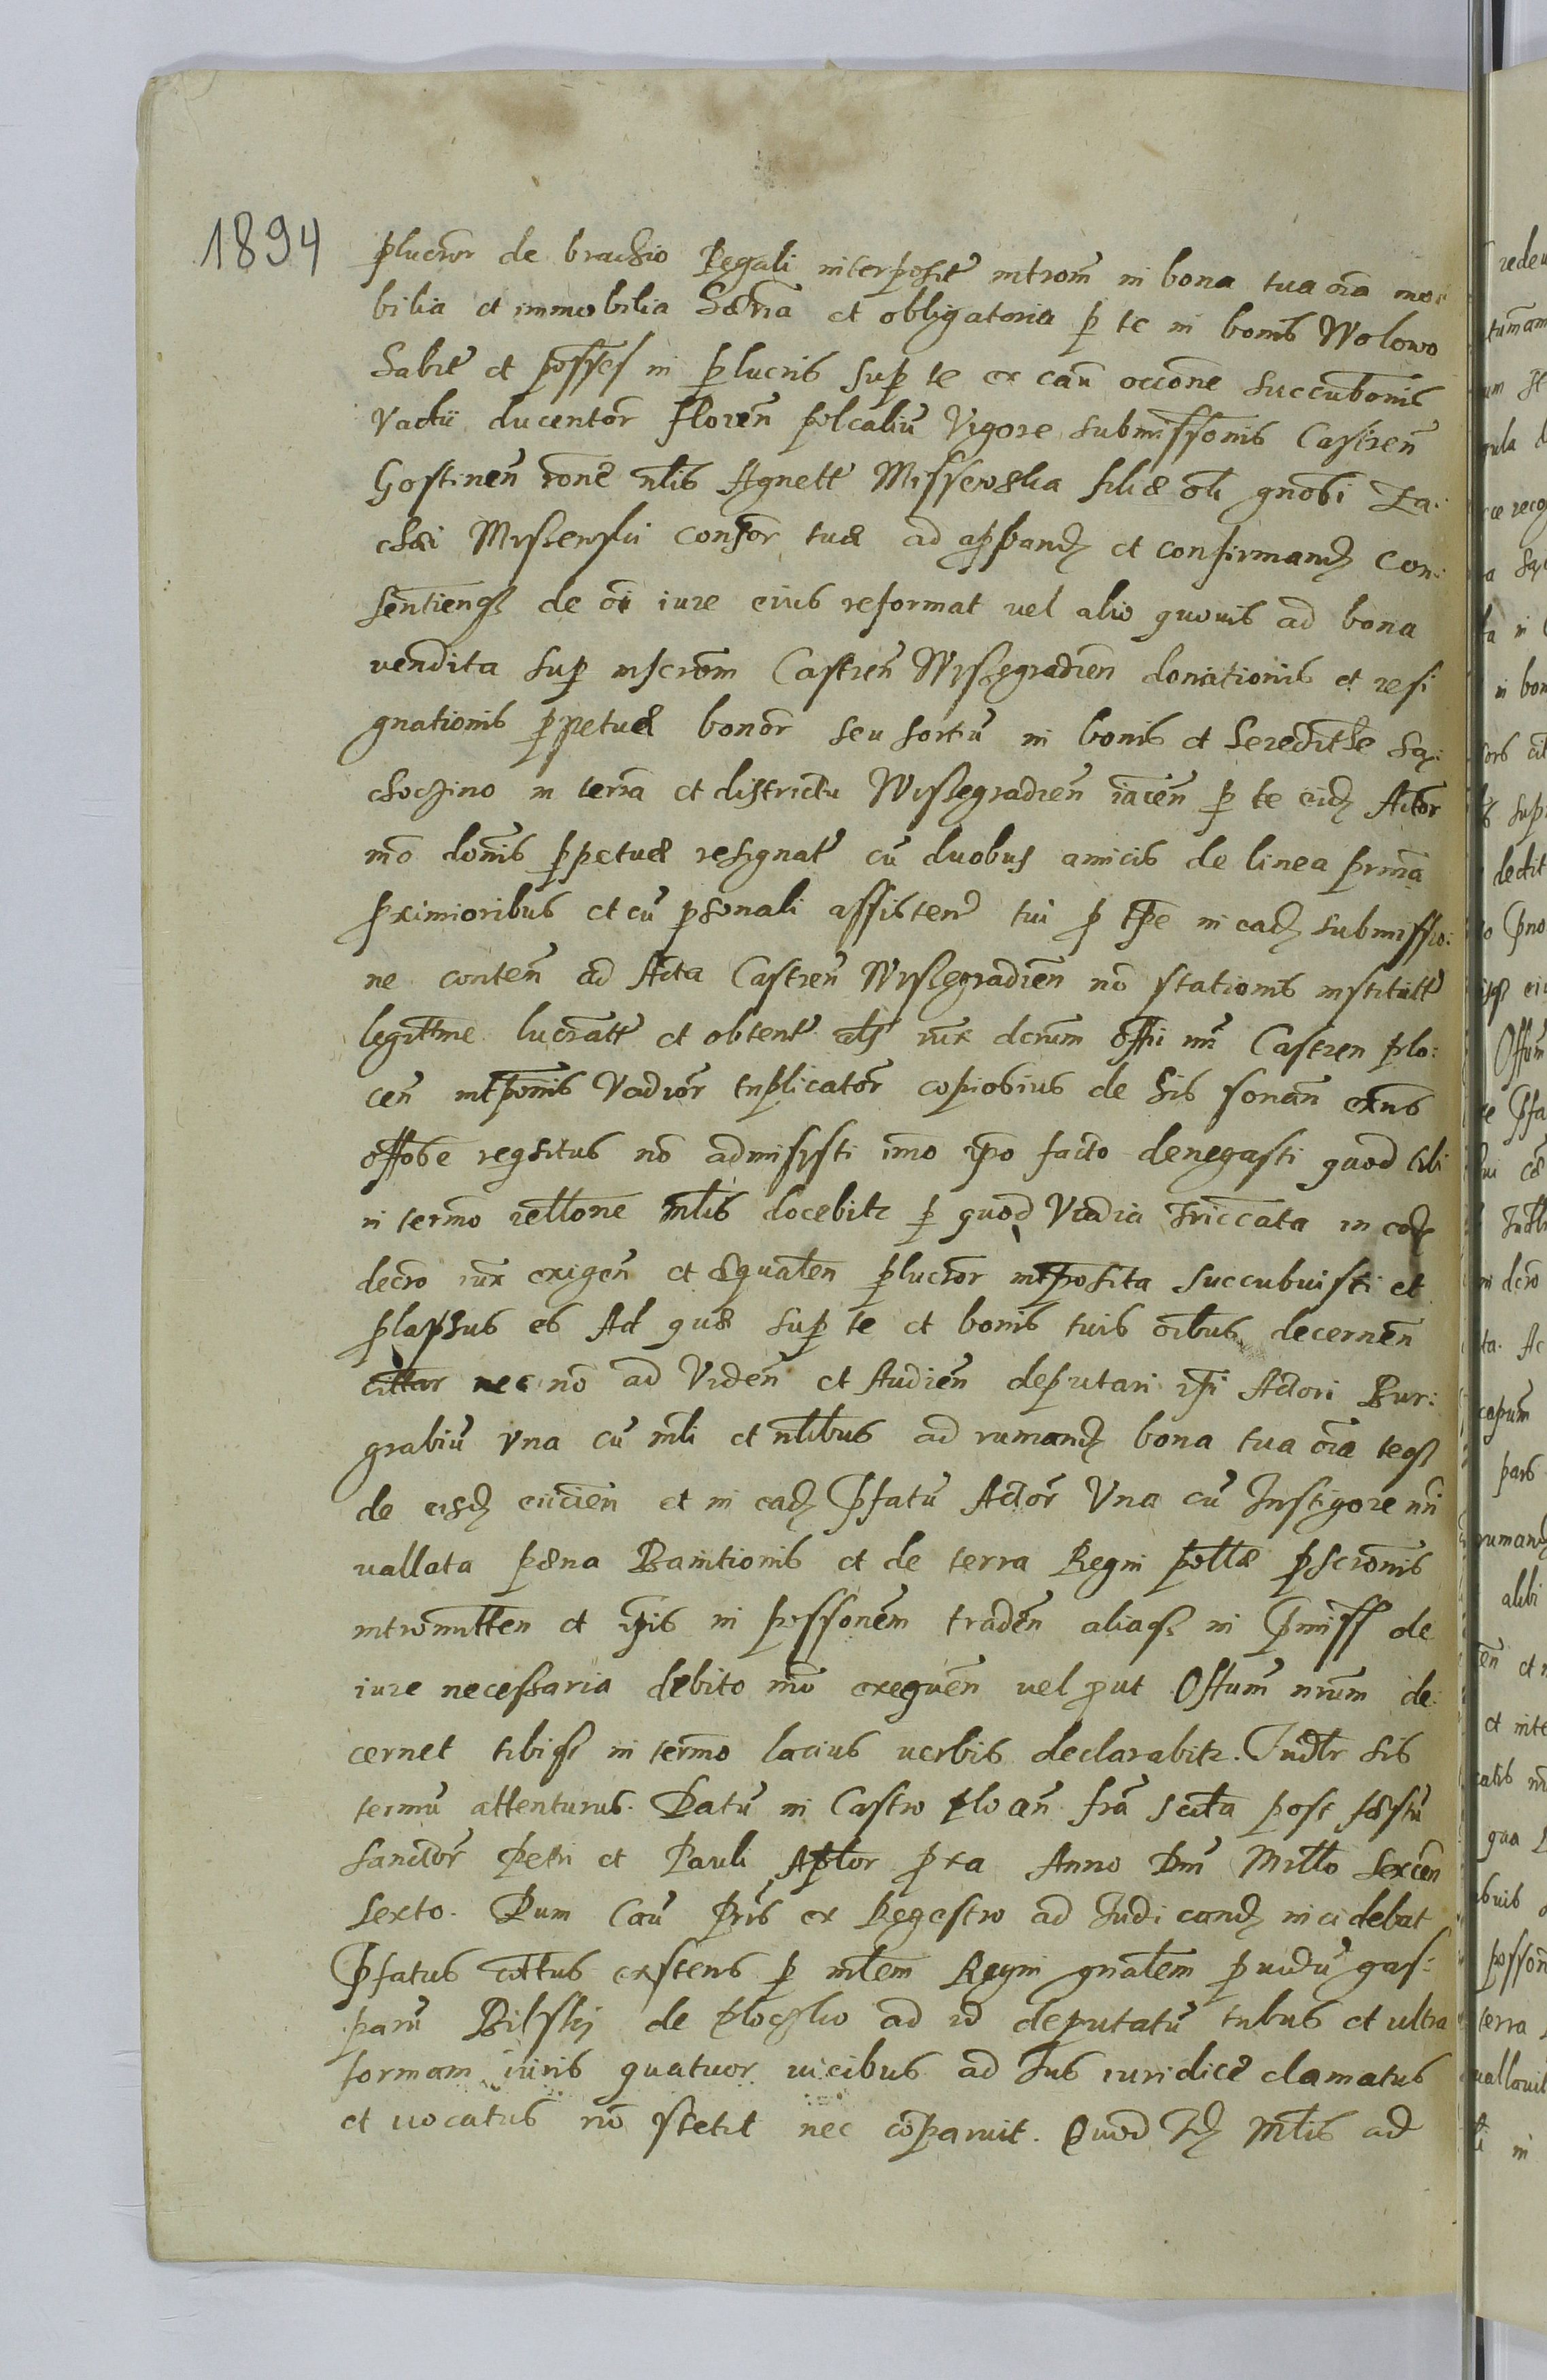 1894
plucror de brachio Regali interposit intrōm in bona tua oīa mo:
bilia et immobilia hæria et obligatoria p te in bonis Wolowo
habit et posses in plucris sup te ex caū occōne succubōnis
Vadii ducentor floreñ polcaliū Vigore submissonis Castreñ
Gostineñ rōne nlis Agnett Missewska filiæ oli gnōsi Za:
chæi Missewski consor tuæ ad appband et confirmand con:
sentienq de oi iure eius reformat vel alio quovis ad bona
vendita sup inscrōm Castreñ Wyssegradieñ donationis et resi
gnationis ppetuæ bonor seu sortiū in bonis et hereditte
chocino in terra et districtu Wissegradieñ iaceñ p te eid Actor
mō donis ppetuæ resignat cū duobus amicis de linea prima
pximioribus et cū psonali assisten tui p tpe in ead submissio:
ne conteñ ad Acta Castreñ Wyssegradieñ nō stationis institutt
legittme lucratt et obtent als iux decrum offii nri Castren plo:
ceñ intpōnis Vadior triplicator copiosius de his sonañ
offose reqsitus nō admisisti imo ipo facto denegasti quod tibi
in termō rellone mlis docebitr p quod Vadia triccata in eod
decro iux exigeñ et æqualen plucror intposita succubuisti et
plapsus es Ad quæ sup te et bonis tuis oibus decerneñ
cittar nec nō ad Videñ et Audieñ deputari ipi Actori Bur:
grabiū Vna cū mli et nlibus ad rumand bona tua oīa teq
de eisd eiicieñ et in ead Pfatū Actor Vna cū Instigore nri
vallata pæna Bannitionis et de terra Regni pollæ pscrōnis
intromitten et ipis in possonem tradeñ aliaq in Pmiss de
iure necessaria debito mō exequeñ vel put Offum nrum de:
cernet tibiq in termō latius verbis declarabitr. Iudlr his
termū attenturus. Datū in Castro plocañ fra scda post fæstū
sanctor Petri et Pauli Aplor pxa Anno Dni Millo sexceñ
sexto. Dum Cau pns ex Regestro ad Iudicand incidebat
Pfatus cittus exstens p mlem Regni gnalem pvidū gas:
parū Bilsky de plocsko ad id deputatū tribus et ultra
formam iuris quatuor vicibus ad Ius iuridice clamatus
et vocatus nō stetit nec cōparuit. Quod Id Mlis ad